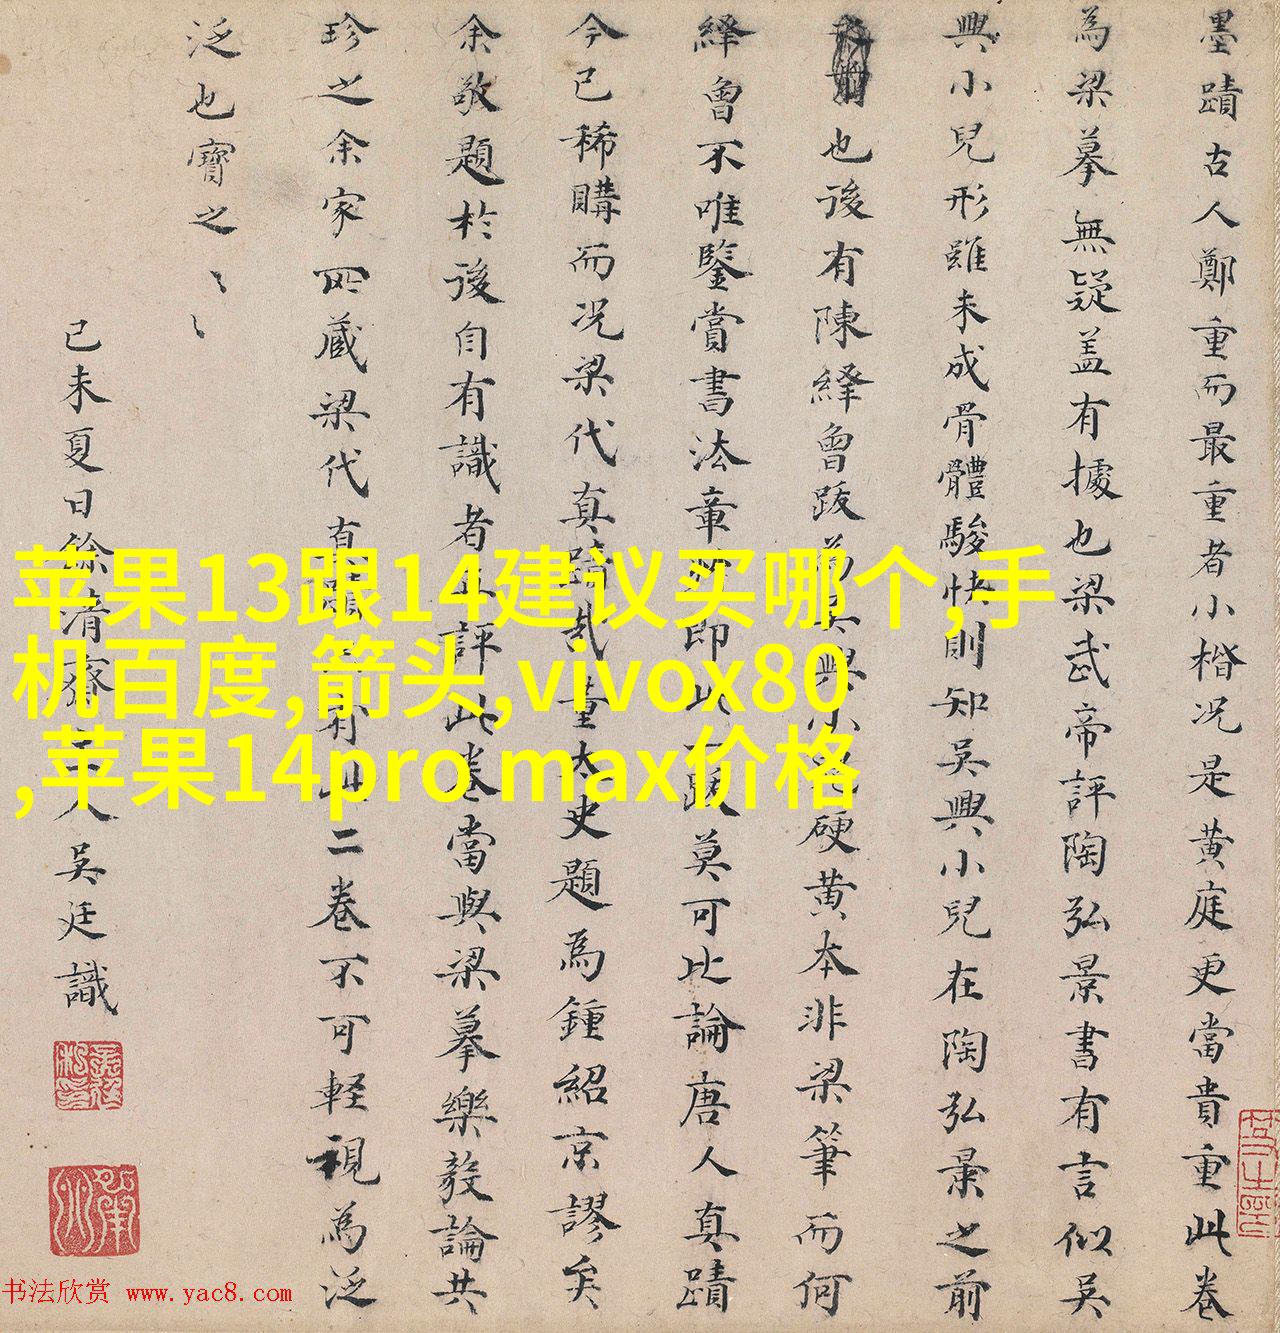 墨蹟古人鄭重而最重者小楷况是黄庭更當貴重此卷
為梁摹無疑盖有據也梁武帝評陶弘景書有言似吴
興小兒形雖未成骨體駿快則知吴興小兒在陶弘景之前
也後有陳繹曾跋為吴興小兒硬黄本非梁筆而何
繹曾不唯鑒賞書法章即此一跋莫可比論唐人真蹟
今已稀購而况梁代真蹟哉董太史題為鍾紹京謬矣
余敬題於後自有識者且評此卷當與梁摹樂毅論共
珍之余家所藏梁代有此二卷不可輕視為泛
泛也寶之〻〻
己未夏日餘清齋主人吴廷識
苹果13跟14建议买哪个,手
机百度,箭头,vivox80
,苹果14pro max价格
书法欣赏 www.yac8.com